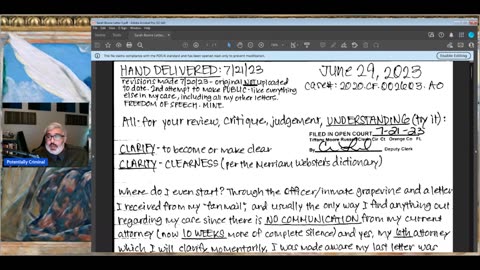 Sarah Boone Letter 2.pdf - Adobe Acrobat Pro (32-bit)
This file claims compliance with the PDF/A standard and has been opened read-only to prevent modification.
HAND DELIVERED: 7/21/23
JUNE 29, 2023
revisions made 7/20/23 - original NOT uploaded
CASE#: 2020-CF-002603-A-O
to date. 2nd attempt to make PUBLIC - like everything
else in my case, including all my other letters.
FREEDOM OF SPEECH - MINE.
All - for your review, critique, judgement, UNDERSTANDING (try it):
FILED IN OPEN COURT 7-21-23
Tiffany Moore Russell, Cir Ct Orange Co FL
CLARIFY - to become or make clear
Deputy Clerk
CLARITY - CLEARNESS (per the Merriam Webster's dictionary)
Where do I even start? Through the Officer/inmate grapevine and a letter
I received from my "fan mail"; and usually the only way I find anything out
regarding my case since there is NO COMMUNICATION from my current
attorney (now 10 WEEKS more of complete silence) and yes, my 6th attorney
which I will clarify momentarily, I was made aware my last letter was
Potentially Criminal